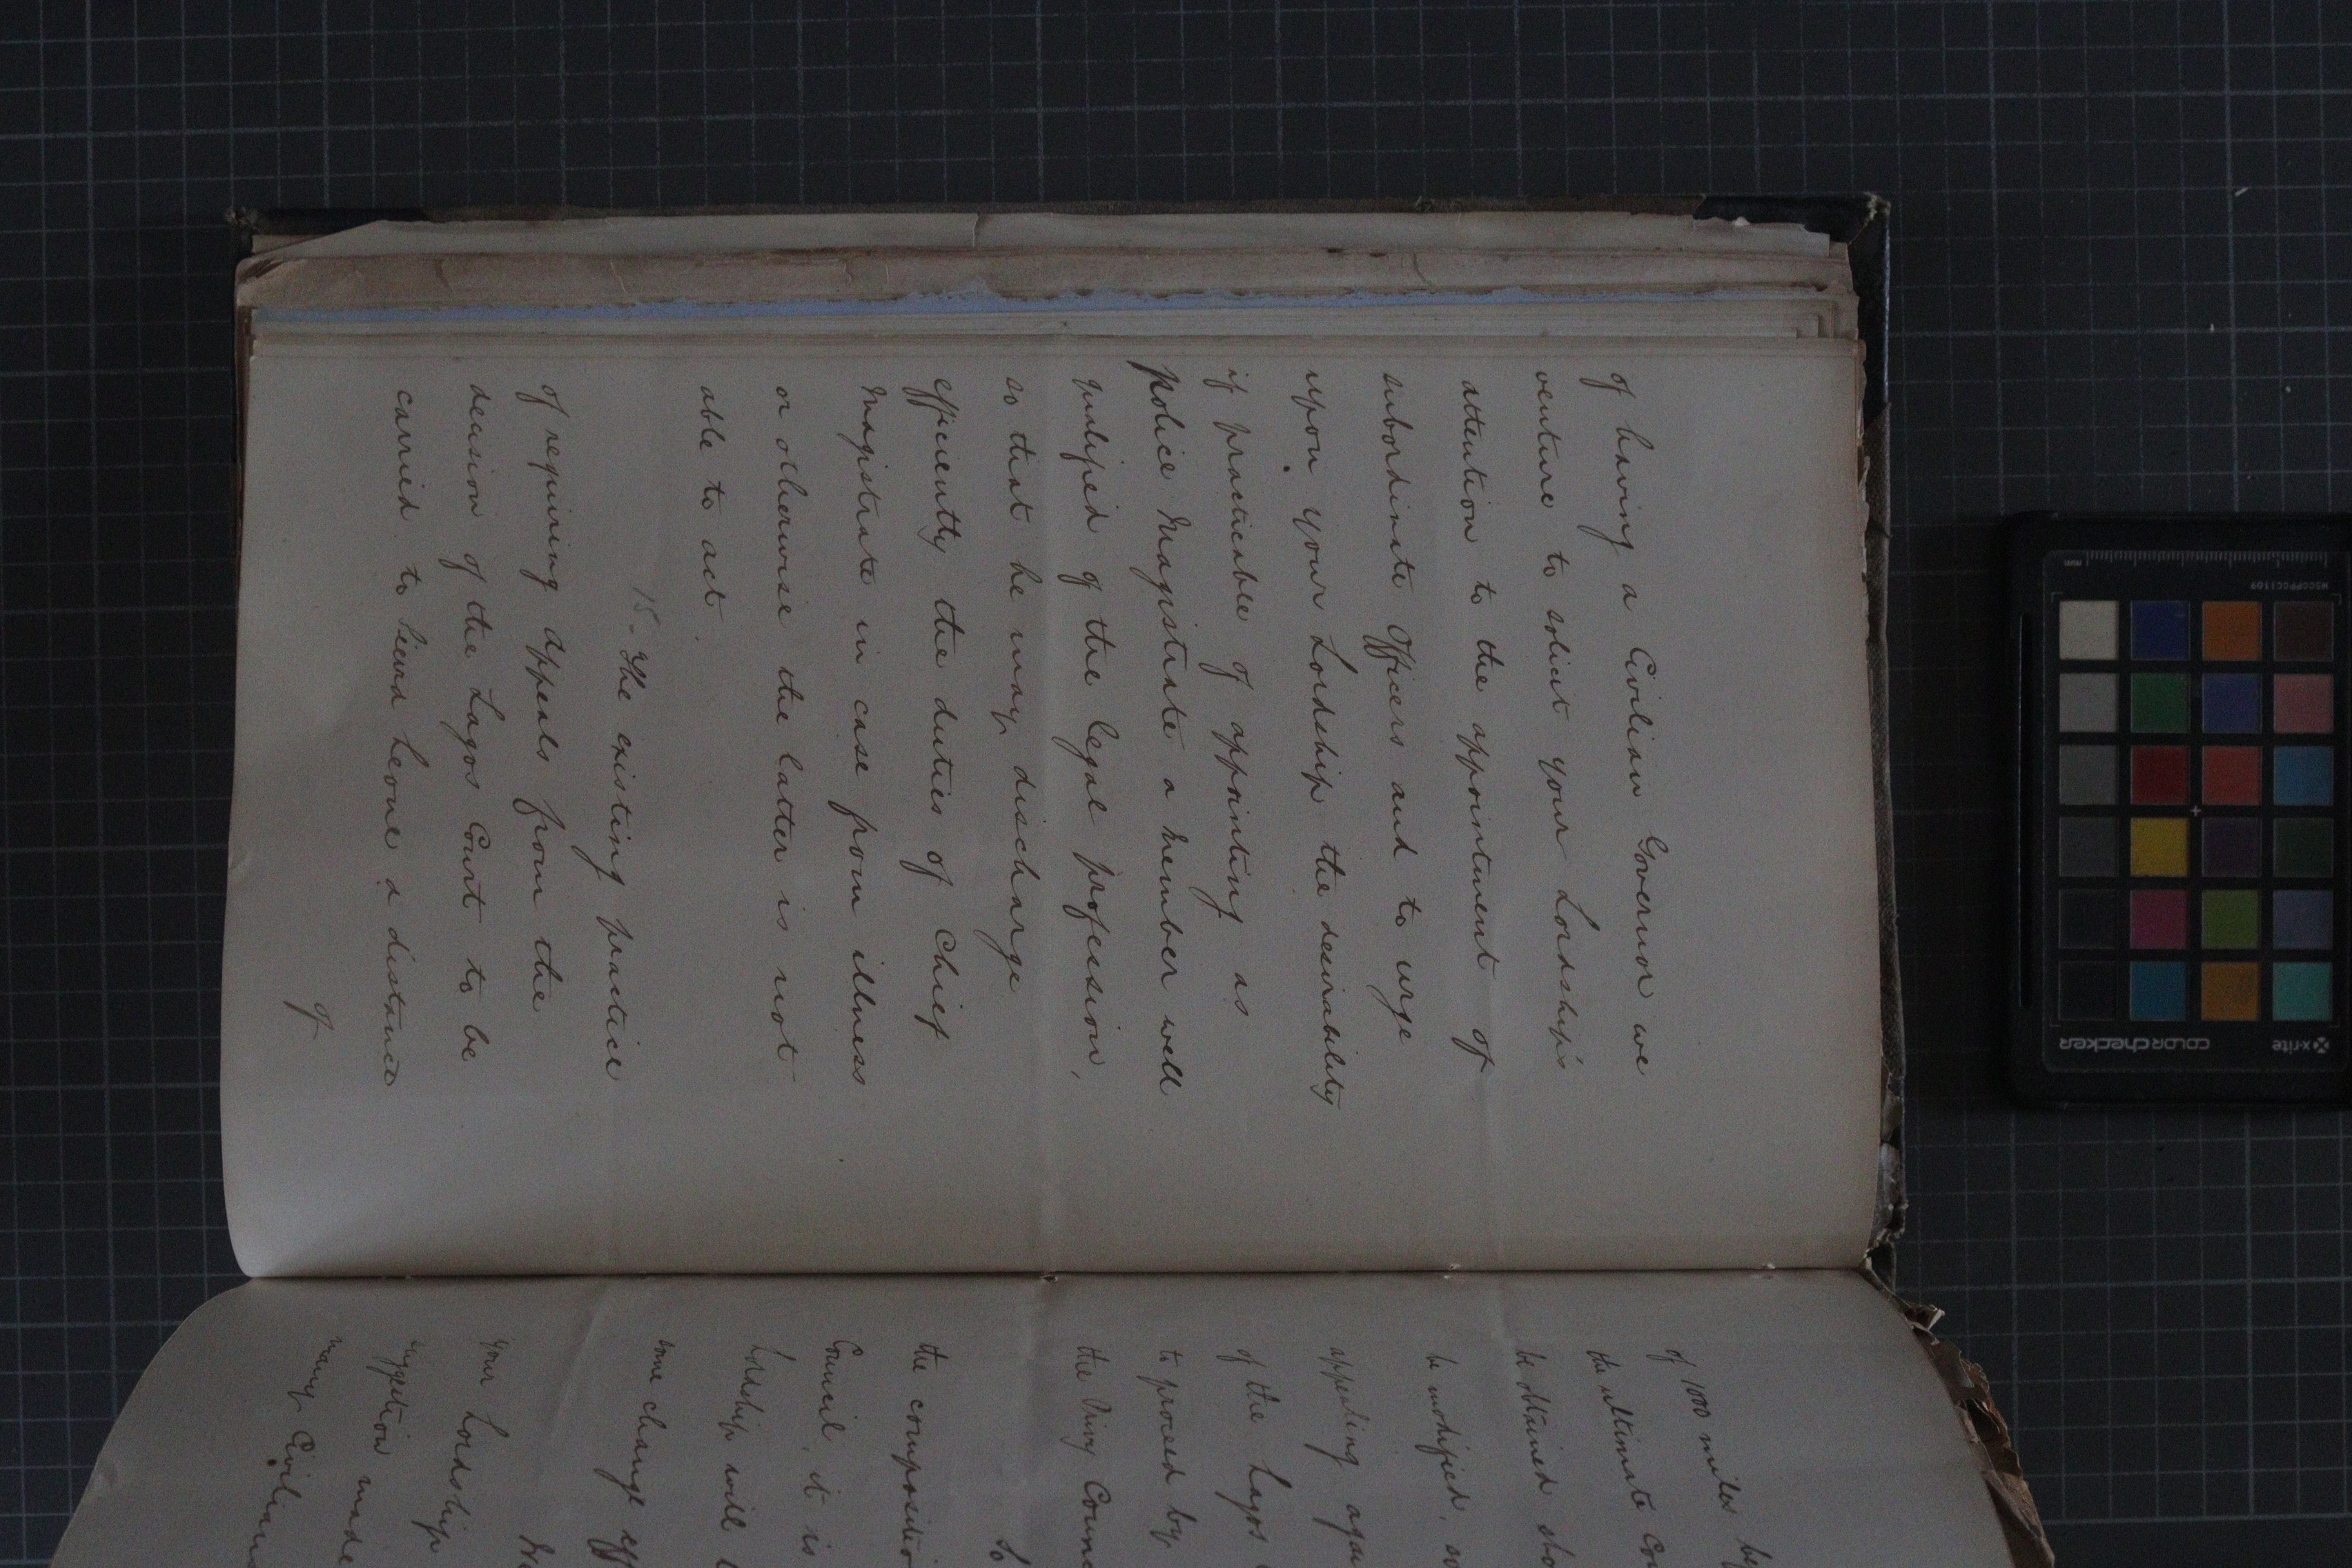 of having a Civilian Governor we
venture to solicit your Lordship's
attention to the appointment of
subordinate Officers and to urge
upon your Lordship the desirability
if practicable of appointing as
police Magistrate a member well
qualified of the legal profession,
so that he may discharge
efficiently the duties of Chief
Magistrate in case from illness
or otherwise the latter is not
able to act.
15. The existing practice
of requiring appeals from the
decision of the Lagos Court to be
carried to Sierra Leone a distance
of
of 1000 miles by
the ultimate
be obtained
be modified, so
appealing
of the Lagos
to proceed by
the Privy
So
the
Council, it is
Lordship will
some change
your Lordship
suggestion made
many Civilians
x-rite
colorchecker
MSCCPPCC1109
mm